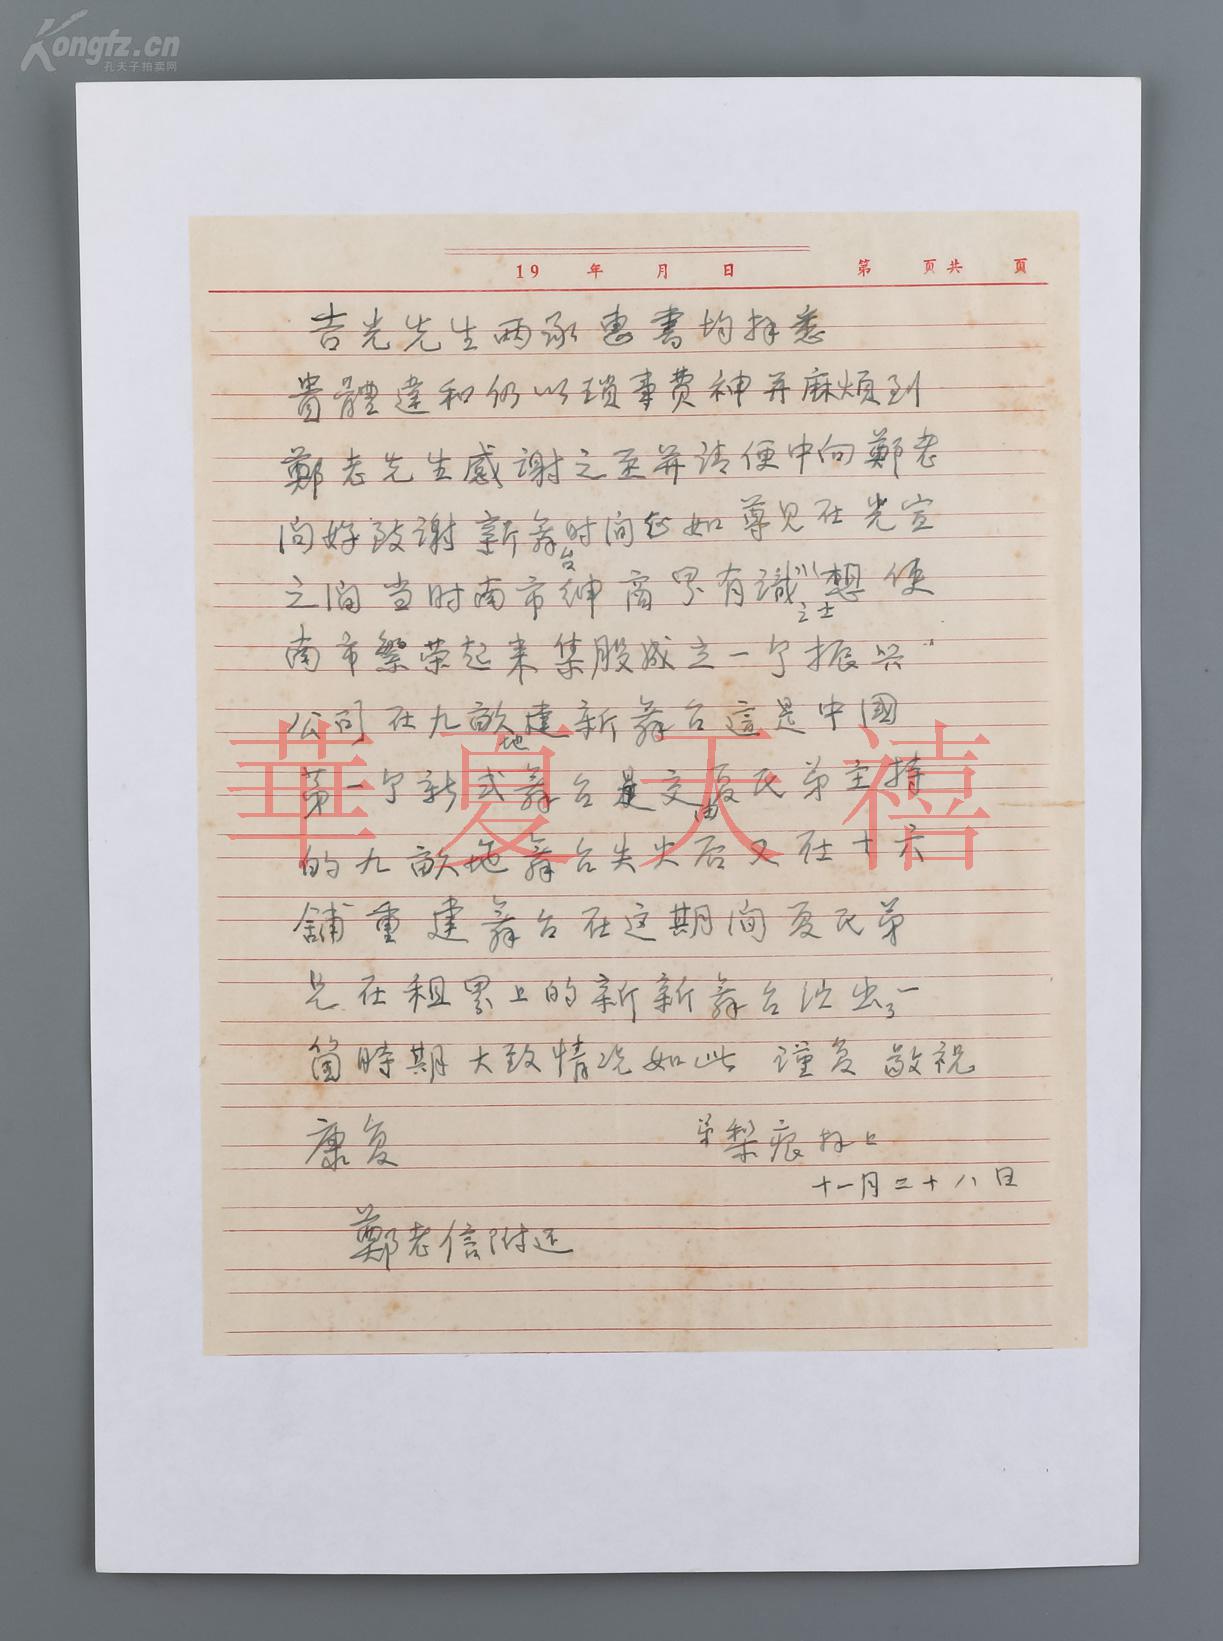 Kongfz.cn
孔夫子拍卖网
19 年 月 日 第 页共 页
吉光先生两承惠書均拜悉
貴體違和仍以瑣事費神并麻煩到
鄭老先生感謝之至并请便中向鄭老
问好致謝新舞台时间誠如尊見在光宣
之间当时南市紳商界有識之士想使
南市繁荣起来集股成立一个振兴
公司在九畝地建新舞台這是中國
第一个新式舞台是交由夏氏弟主持
的九畝地舞台失火后又在十六
舖重建舞台在这期间夏氏弟
兄在租界上的新新舞台演出了一
箇時期大致情况如此 谨复 敬祝
康复
弟梨痕拜上
十一月二十八日
鄭老信附还
華夏天禧